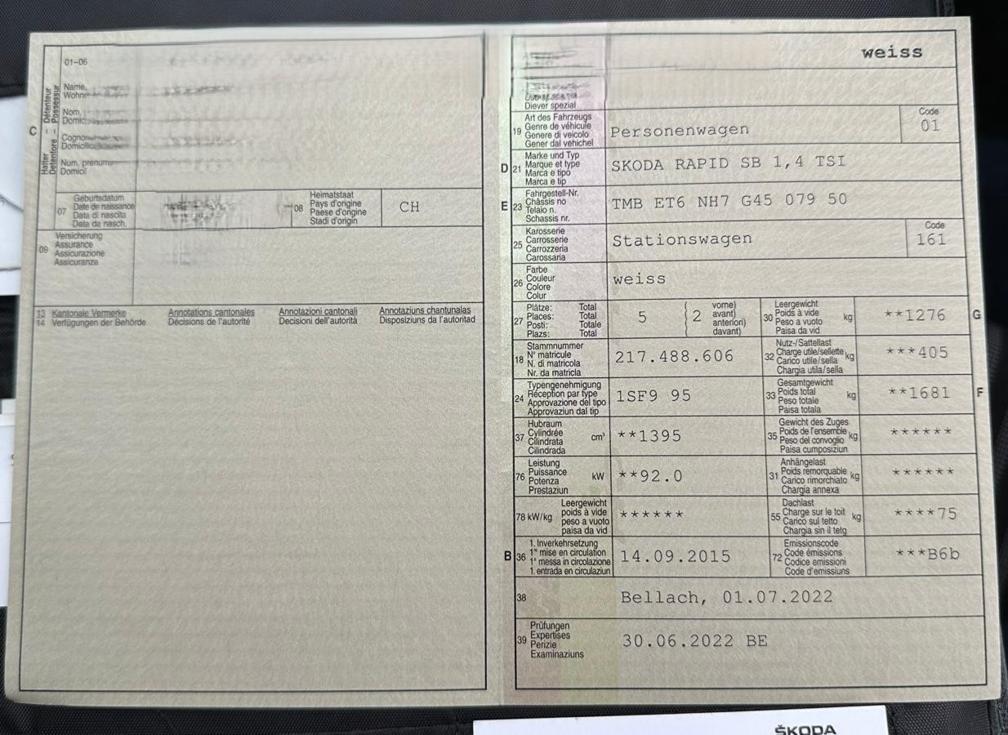 01-06
Name,
Wohn
Nom,
Domic
Cogno
Domicilio
Num, prenum
Domicil
C
Halter – Détenteur
Detentore – Possessur
07
Geburtsdatum
Date de naissance
Data di nascita
Data da nasch.
08
Heimatstaat
Pays d'origine
Paese d'origine
Stadi d'origin
CH
09
Versicherung
Assurance
Assicurazione
Assicuranza
13 Kantonale Vermerke
14 Verfügungen der Behörde
Annotations cantonales
Décisions de l'autorité
Annotazioni cantonali
Decisioni dell'autorità
Annotaziuns chantunalas
Disposiziuns da l'autoritad
weiss
Diever spezial
19
Art des Fahrzeugs
Genre de véhicule
Genere di veicolo
Gener dal vehichel
Personenwagen
Code
01
D 21
Marke und Typ
Marque et type
Marca e tipo
Marca e tip
SKODA RAPID SB 1,4 TSI
E 23
Fahrgestell-Nr.
Châssis no
Telaio n.
Schassis nr.
TMB ET6 NH7 G45 079 50
25
Karosserie
Carrosserie
Carrozzeria
Carossaria
Stationswagen
Code
161
26
Farbe
Couleur
Colore
Colur
weiss
27
Plätze: Total
Places: Total
Posti: Totale
Plazs: Total
5
2
vorne)
avant)
anteriori)
davant)
30
Leergewicht
Poids à vide
Peso a vuoto
Paisa da vid
kg
**1276
G
18
Stammnummer
N° matricule
N. di matricola
Nr. da matricla
217.488.606
32
Nutz-/Sattellast
Charge utile/sellette
Carico utile/sella
Chargia utila/sella
kg
***405
24
Typengenehmigung
Réception par type
Approvazione del tipo
Approvaziun dal tip
1SF9 95
33
Gesamtgewicht
Poids total
Peso totale
Paisa totala
kg
**1681
F
37
Hubraum
Cylindrée
Cilindrata
Cilindrada
cm³
**1395
35
Gewicht des Zuges
Poids de l'ensemble
Peso del convoglio
Paisa cumposiziun
kg
******
76
Leistung
Puissance
Potenza
Prestaziun
kW
**92.0
31
Anhängelast
Poids remorquable
Carico rimorchiato
Chargia annexa
kg
******
78 kW/kg
Leergewicht
poids à vide
peso a vuoto
paisa da vid
******
55
Dachlast
Charge sur le toit
Carico sul tetto
Chargia sin il tetg
kg
****75
B 36
1. Inverkehrsetzung
1re mise en circulation
1a messa in circolazione
1. entrada en circulaziun
14.09.2015
72
Emissionscode
Code émissions
Codice emissioni
Code d'emissiuns
***B6b
38
Bellach, 01.07.2022
39
Prüfungen
Expertises
Perizie
Examinaziuns
30.06.2022 BE
ŠKODA